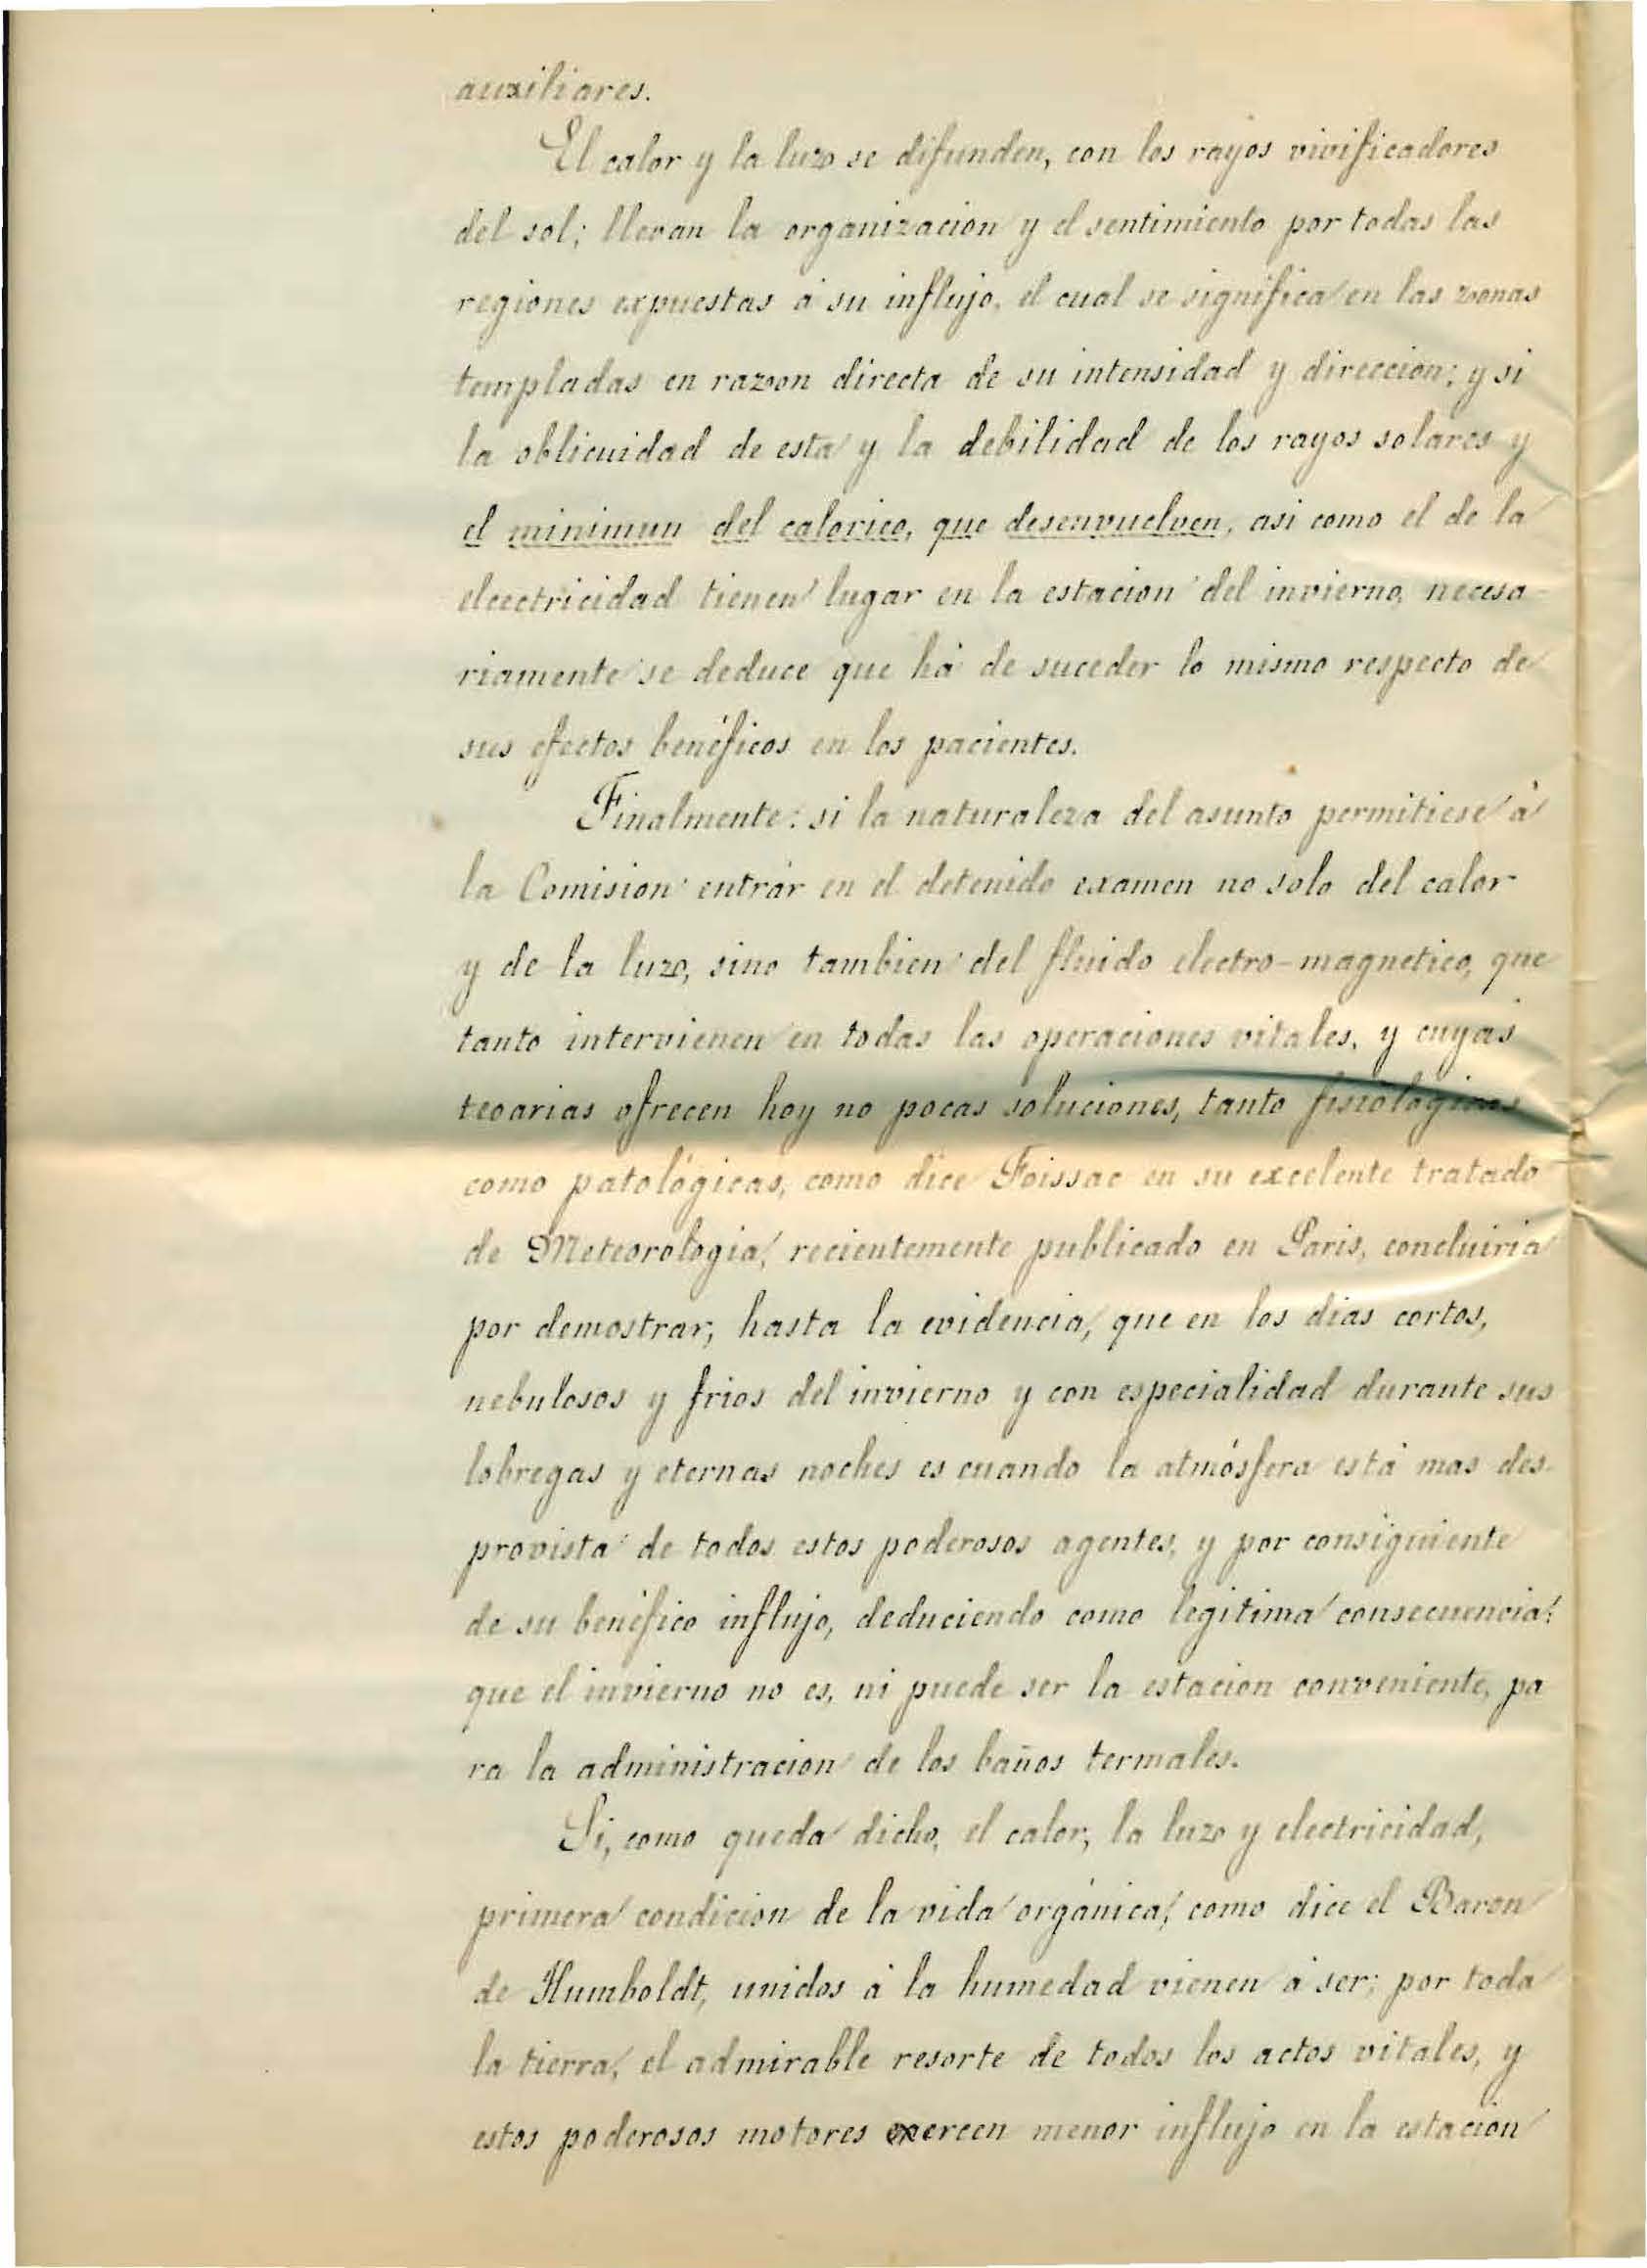 auxiliares.
El calor y la luz se difunden, con los rayos vivificadores
del sol; llevan la organizacion y el sentimiento por todas las
regiones expuestas á su influjo, el cual se significa en las zonas
templadas en razon directa de su intensidad y direccion; y si
la oblicuidad de esta y la debilidad de los rayos solares y
el minimun del calorico, que desenvuelven, asi como el de la
electricidad tienen lugar en la estacion del invierno, necesa-
riamente se deduce que há de suceder lo mismo respecto de
sus efectos benéficos en los pacientes.
Finalmente: si la naturaleza del asunto permitiese á
la Comision entrár en el detenido examen no solo del calor
y de la luz, sino tambien del fluido electro-magnetico, que
tanto intervienen en todas las operaciones vitales, y cuyas
teoarias ofrecen hoy no pocas soluciones, tanto fisiológicas
como patológicas, como dice Foissac en su excelente tratado
de Meteorologia, recientemente publicado en Paris, concluiria
por demostrar, hasta la evidencia, que en los dias cortos,
nebulosos y frios del invierno y con especialidad durante sus
lobregas y eternas noches es cuando la atmósfera está mas des-
provista de todos estos poderosos agentes, y por consiguiente
de su benéfico influjo, deduciendo como legitima consecuencia:
que el invierno no es, ni puede ser la estacion conveniente, pa
ra la administracion de los baños termales.
Si, como queda dicho, el calor, la luz y electricidad,
primera condicion de la vida orgánica, como dice el Baron
de Humboldt, unidos á la humedad vienen á ser, por toda
la tierra, el admirable resorte de todos los actos vitales, y
estos poderosos motores exercen menor influjo en la estacion